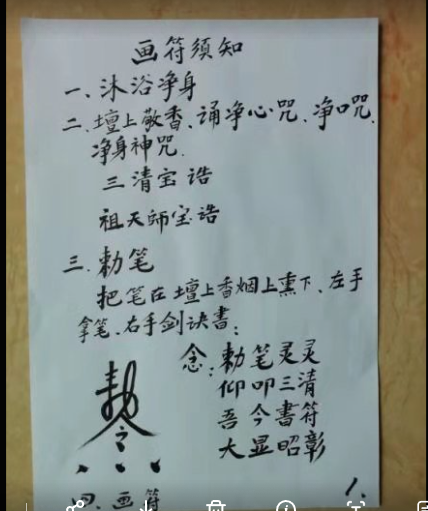 画符须知
一、沐浴净身
二、壇上敬香、诵净心咒、净口咒、
净身神咒.
三清宝诰
祖天师宝诰
三、勅笔
把笔在壇上香烟上熏下、左手
拿笔、右手剑诀書:
念:勅笔灵灵
仰叩三清
吾今書符
大显昭彰
四、画符
1.